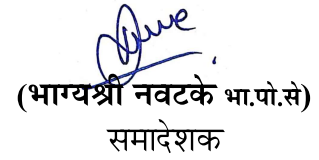 (भाग्यश्री नवटके भा.पो.से)
समादेशक